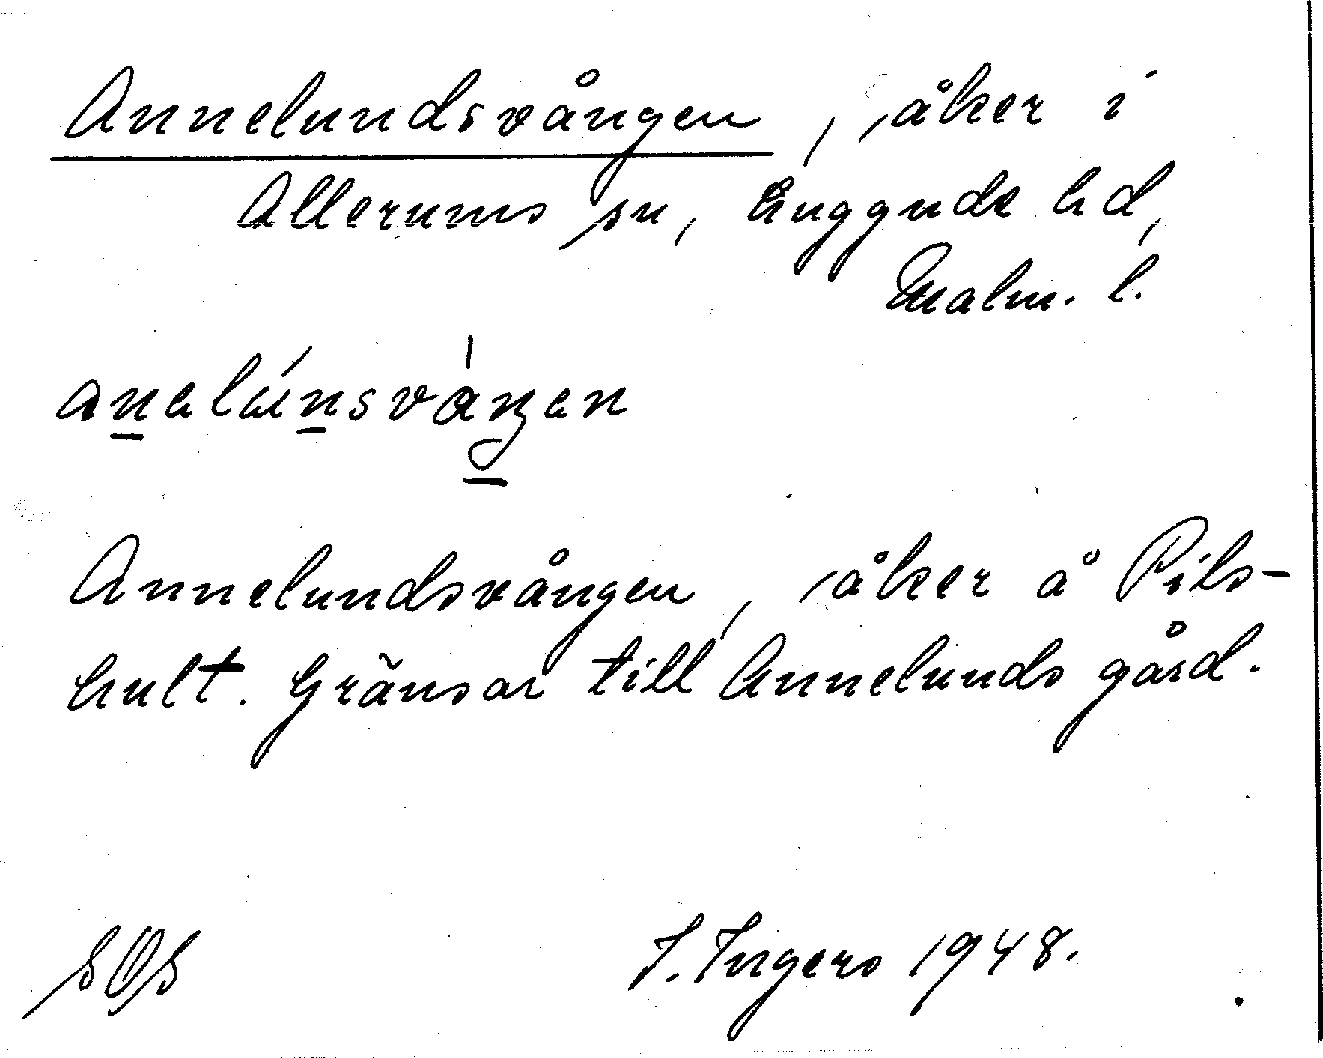 Annelundsvången, åker i
Allerums sn, Luggude hd,
Malm. l.
Annelundsvången, åker å Pils-
hult. Gränsar till Annelunds gård.
SOS J. Ingers 1948.